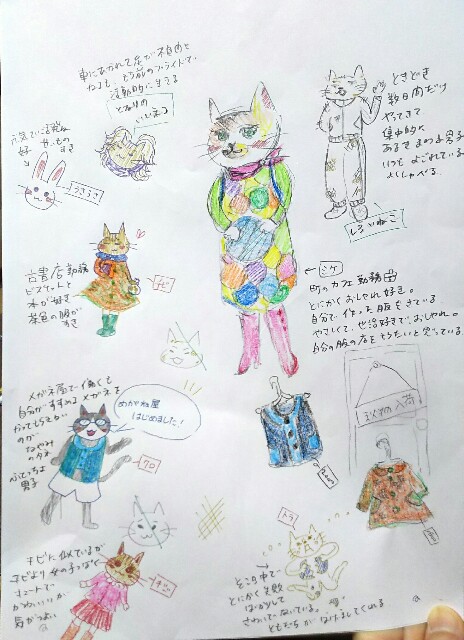 車にひかれて足が不自由と
なるも、もち前のプライドで
活動的に生きる
となりの
いいねこ
元気で活発
甘いもの
好き
うさうさ
ときどき
数日間だけ
やってきて
集中的に
あるきまわる男子
いつもよごれている
よくしゃべる
しろいねこ
古書店勤務
ビスケットと
本が好き
茶色の服が
すき
ミケ
町のカフェ勤務
とにかくおしゃれ好き。
自分で作った服をきている
やさしくて、世話好きで、おしゃれ。
自分の服の店をもちたいと思っている
メガネ屋で働くも
自分がすすめるメガネを
かってもらえない
のが
なやみ
のタネ
ぶきっちょ
男子
めがね屋
はじめました!
クロ
ふくの入荷
トラ
そこら中で
とにかく失敗
ばかりして
さわいでないている。
ともだちがはげましてくれる
に似ているが
より女の子っぽく
キュートで
かわいいが
気がつよい
チビ